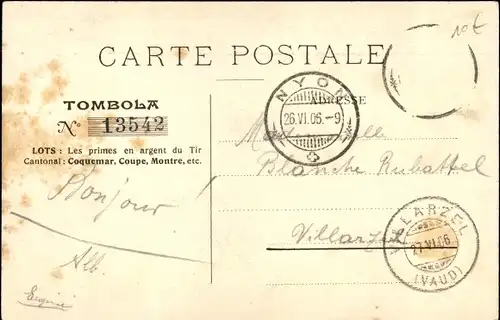 10€
CARTE POSTALE
TOMBOLA
No 13542
LOTS : Les primes en argent du Tir
Cantonal : Coquemar, Coupe, Montre, etc.
NYON
26.VI.06.-9
ADRESSE
Mademoiselle
Blanche Rubattel
Villarzel
VILLARZEL
27.VI.06
(VAUD)
Bonjour !
Alb.